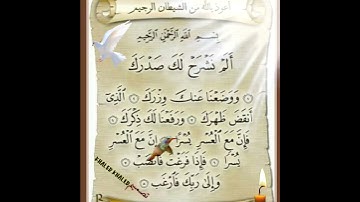 أعوذ بالله من الشيطان الرجيم
بِسْمِ اللَّهِ الرَّحْمَٰنِ الرَّحِيمِ
أَلَمْ نَشْرَحْ لَكَ صَدْرَكَ
۞ وَوَضَعْنَا عَنكَ وِزْرَكَ ۞ الَّذِي
أَنقَضَ ظَهْرَكَ ۞ وَرَفَعْنَا لَكَ ذِكْرَكَ ۞
فَإِنَّ مَعَ الْعُسْرِ يُسْرًا ۞ إِنَّ مَعَ الْعُسْرِ
يُسْرًا ۞ فَإِذَا فَرَغْتَ فَانصَبْ ۞
وَإِلَىٰ رَبِّكَ فَارْغَب ۞
KHALED KHALED تصميم